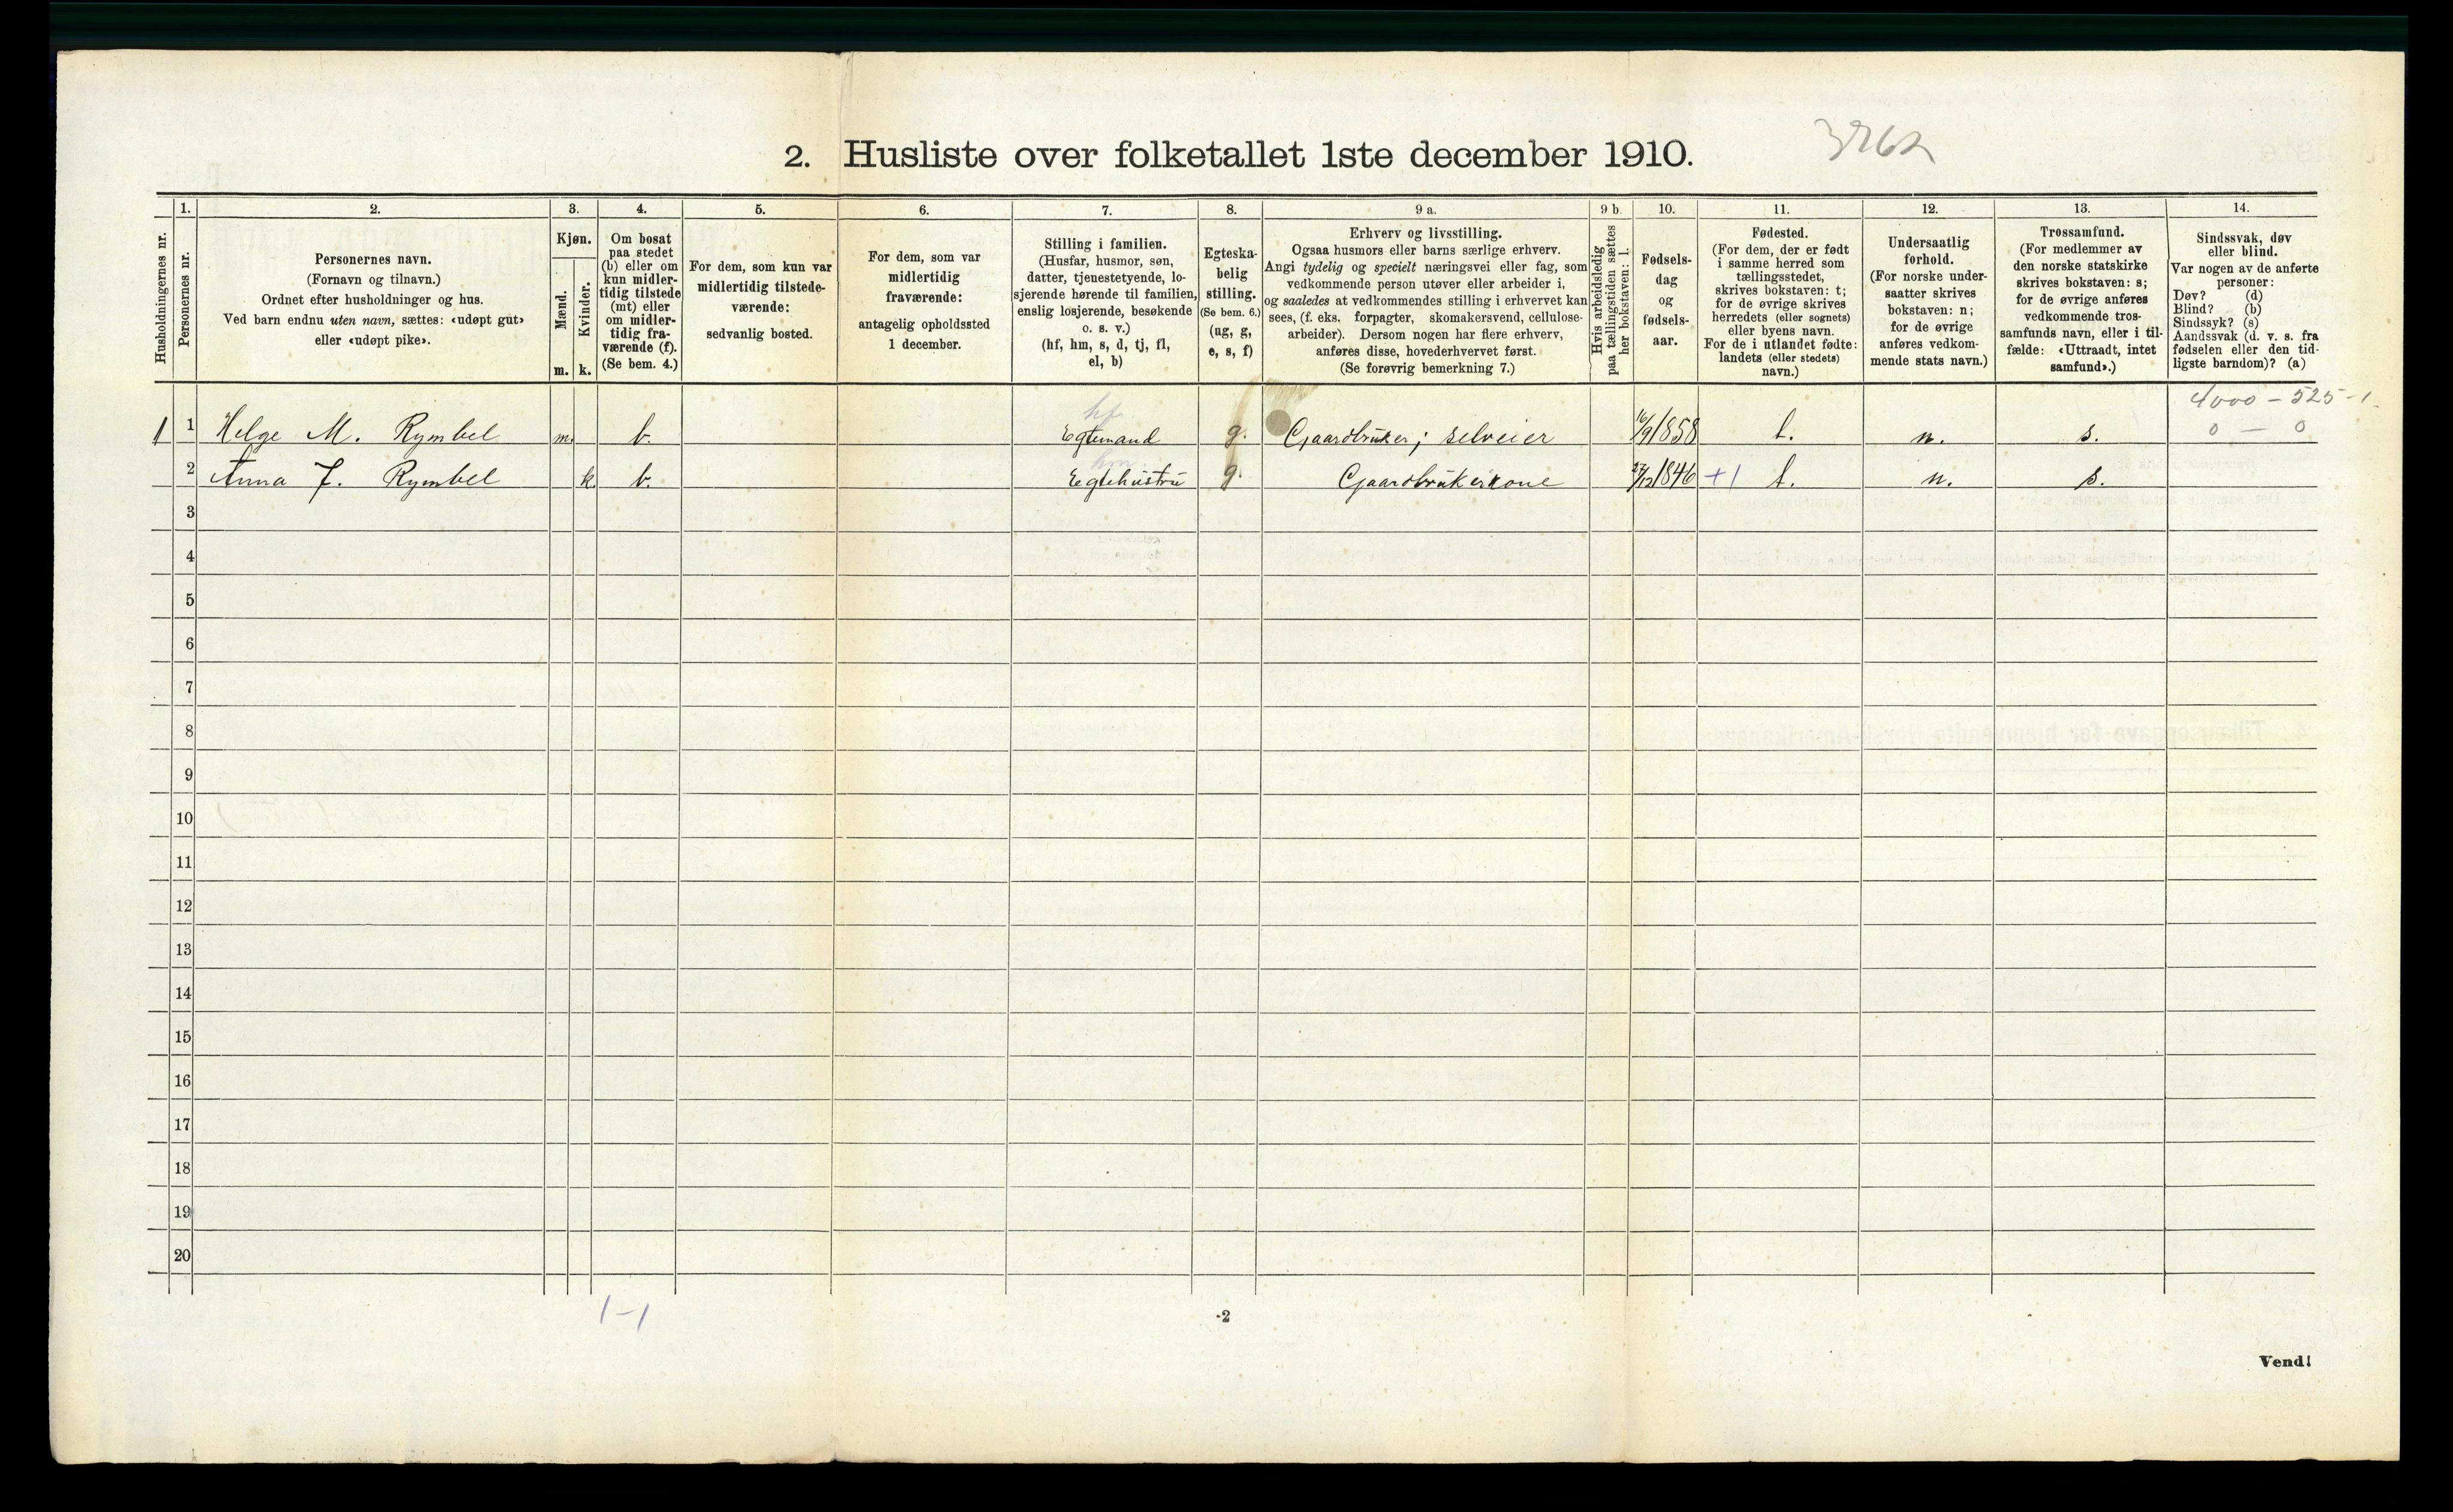 2. Husliste over folketallet 1ste december 1910.
Husholdningernes nr.
1.
Personernes nr.
2.
Personernes navn.
(Fornavn og tilnavn.)
Ordnet efter husholdninger og hus.
Ved barn endnu uten navn, sættes: «udøpt gut»
eller «udøpt pike».
3.
Kjøn.
Mænd.
Kvinder.
m. k.
4.
Om bosat
paa stedet
(b) eller om
kun midler-
tidig tilstede
(mt) eller
om midler-
tidig fra-
værende (f).
(Se bem. 4.)
5.
For dem, som kun var
midlertidig tilstede-
værende:
sedvanlig bosted.
6.
For dem, som var
midlertidig
fraværende:
antagelig opholdssted
1 december.
7.
Stilling i familien.
(Husfar, husmor, søn,
datter, tjenestetyende, lo-
sjerende hørende til familien,
enslig losjerende, besøkende
o. s. v.)
(hf, hm, s, d, tj, fl,
el, b)
8.
Egteska-
belig
stilling.
(Se bem. 6.)
(ug, g,
e, s, f)
9 a.
Erhverv og livsstilling.
Ogsaa husmors eller barns særlige erhverv.
Angi tydelig og specielt næringsvei eller fag, som
vedkommende person utøver eller arbeider i,
og saaledes at vedkommendes stilling i erhvervet kan
sees, (f. eks. forpagter, skomakersvend, cellulose-
arbeider). Dersom nogen har flere erhverv,
anføres disse, hovederhvervet først.
(Se forøvrig bemerkning 7.)
9 b.
Hvis arbeidsledig
paa tællingstiden sættes
her bokstaven: l.
10.
Fødsels-
dag
og
fødsels-
aar.
11.
Fødested.
(For dem, der er født
i samme herred som
tællingsstedet,
skrives bokstaven: t;
for de øvrige skrives
herredets (eller sognets)
eller byens navn.
For de i utlandet fødte:
landets (eller stedets)
navn.)
12.
Undersaatlig
forhold.
(For norske under-
saatter skrives
bokstaven: n;
for de øvrige
anføres vedkom-
mende stats navn.)
13.
Trossamfund.
(For medlemmer av
den norske statskirke
skrives bokstaven: s;
for de øvrige anføres
vedkommende tros-
samfunds navn, eller i til-
fælde: «Uttraadt, intet
samfund».)
14.
Sindssvak, døv
eller blind.
Var nogen av de anførte
personer:
Døv? (d)
Blind? (b)
Sindssyk? (s)
Aandssvak (d. v. s. fra
fødselen eller den tid-
ligste barndom)? (a)
hf 4000 - 525 - 1
1 1 Helge M. Rymbel m. b. Egtemand g. Gaardbruker; selveier 16/9/858 t. n. s. 0 - 0
hm
2 Anna J. Rymbel k. b. Egtehustru g. Gaardbrukerkone 27/12/846 +1 t. n. s.
3
4
5
6
7
8
9
10
11
12
13
14
15
16
17
18
19
20
1-1
2
Vend!